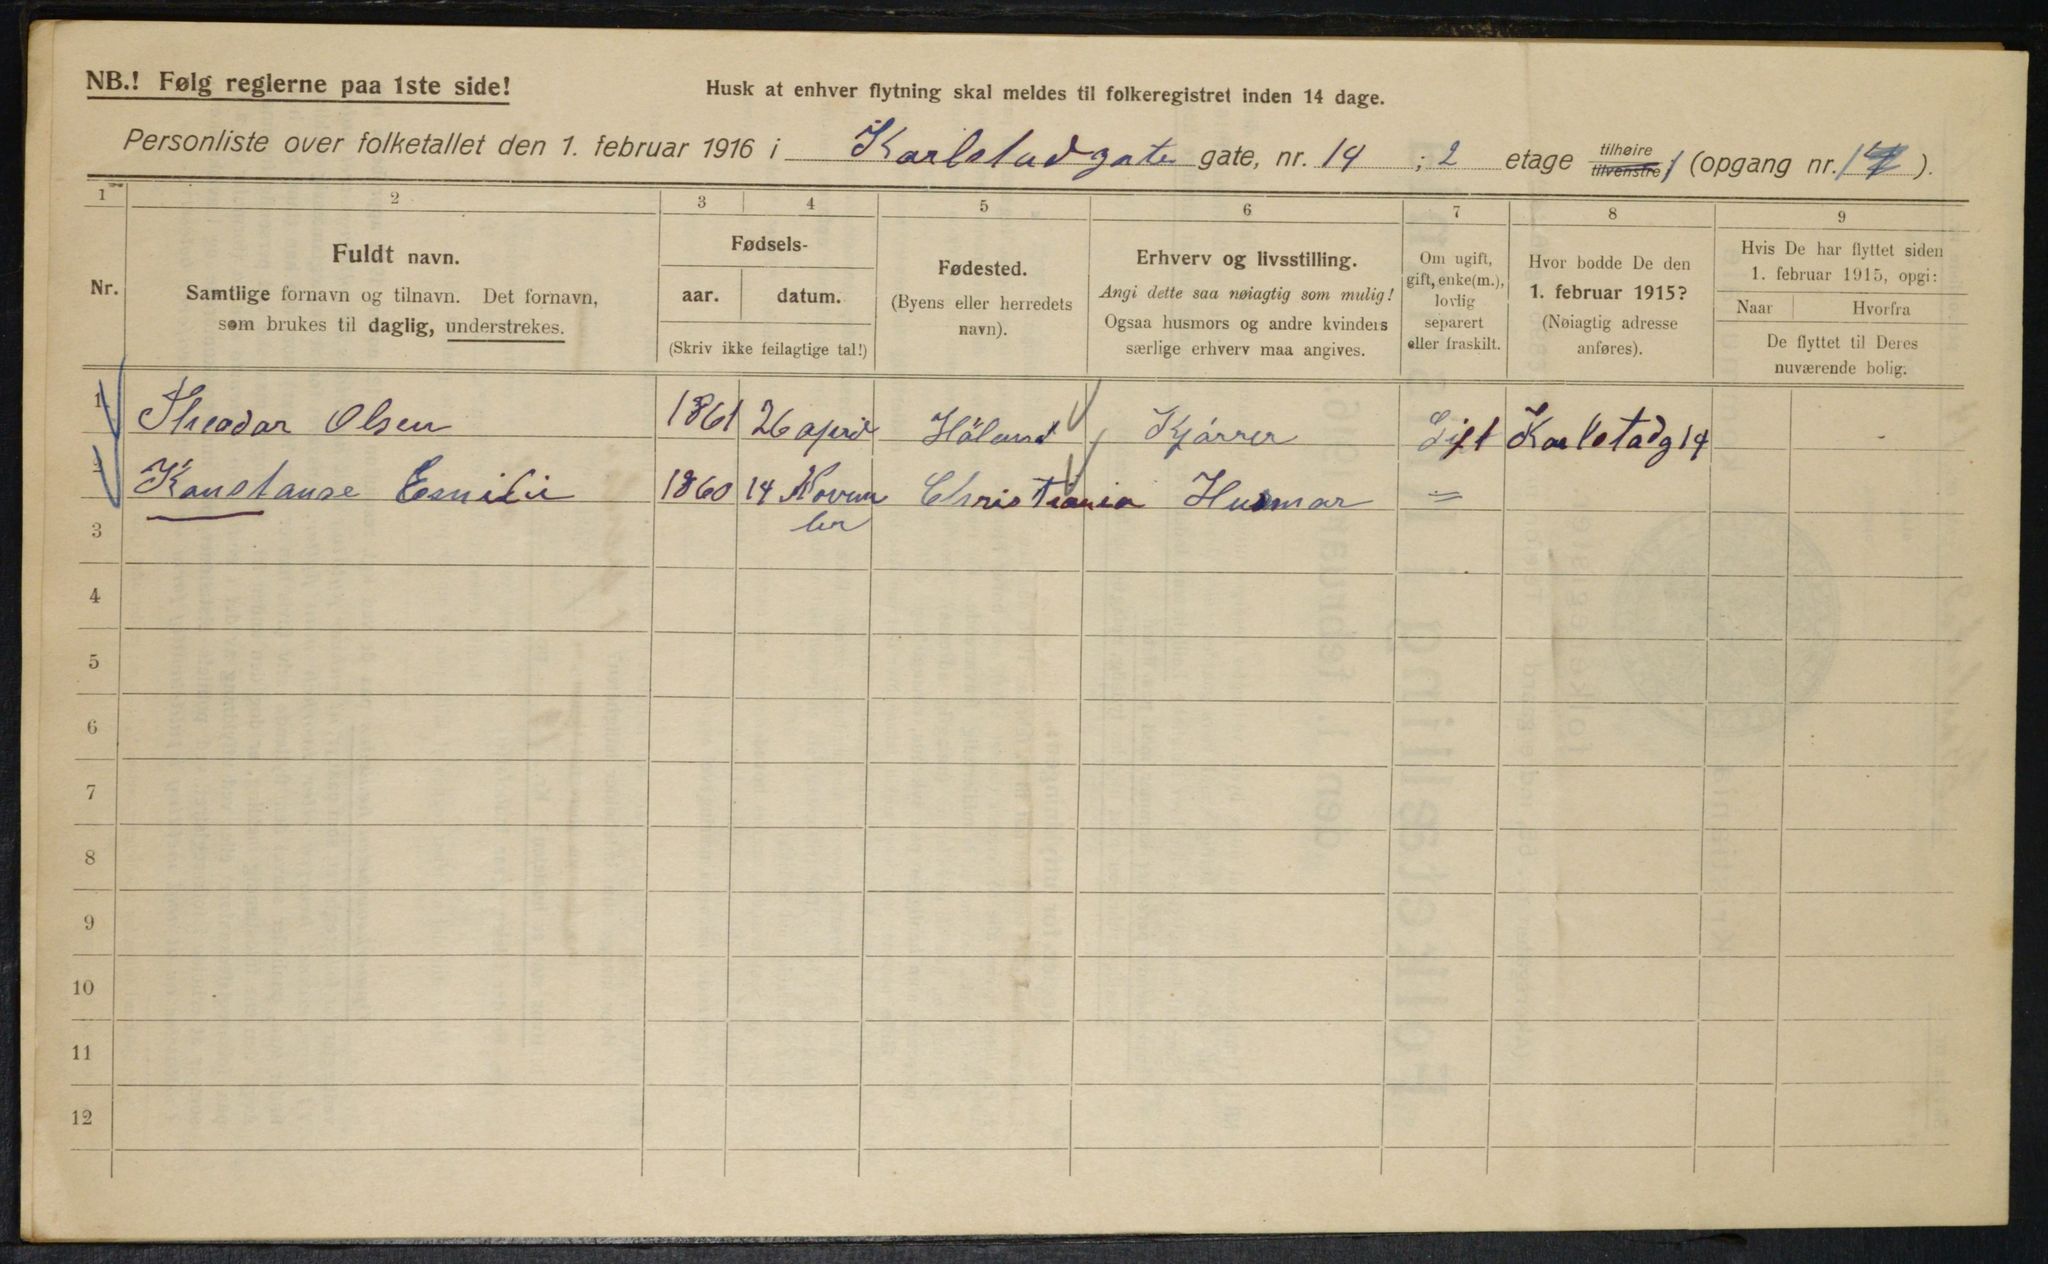 NB.! Følg reglerne paa 1ste side!
Husk at enhver flytning skal meldes til folkeregistret inden 14 dage.
Personliste over folketallet den 1. februar 1916 i Karlstadgate gate, nr. 14 ; 2 etage tilhøire tilvenstre / (opgang nr. 1 ).
1 2 3 4 5 6 7 8 9
Nr.
Fuldt navn.
Samtlige fornavn og tilnavn. Det fornavn,
som brukes til daglig, understrekes.
Fødsels-
aar. datum.
(Skriv ikke feilagtige tal!)
Fødested.
(Byens eller herredets
navn).
Erhverv og livsstilling.
Angi dette saa nøiagtig som mulig!
Ogsaa husmors og andre kvinders
særlige erhverv maa angives.
Om ugift,
gift, enke(m.),
lovlig
separert
eller fraskilt.
Hvor bodde De den
1. februar 1915?
(Nøiagtig adresse
anføres).
Hvis De har flyttet siden
1. februar 1915, opgi:
Naar Hvorfra
De flyttet til Deres
nuværende bolig.
1 Theodor Olsen 1861 26 april Höland Kjörrer Gift Karlstadg 14
2 Konstanse Emilie 1860 14 Novem Christiania Husmor =
ber
3
4
5
6
7
8
9
10
11
12